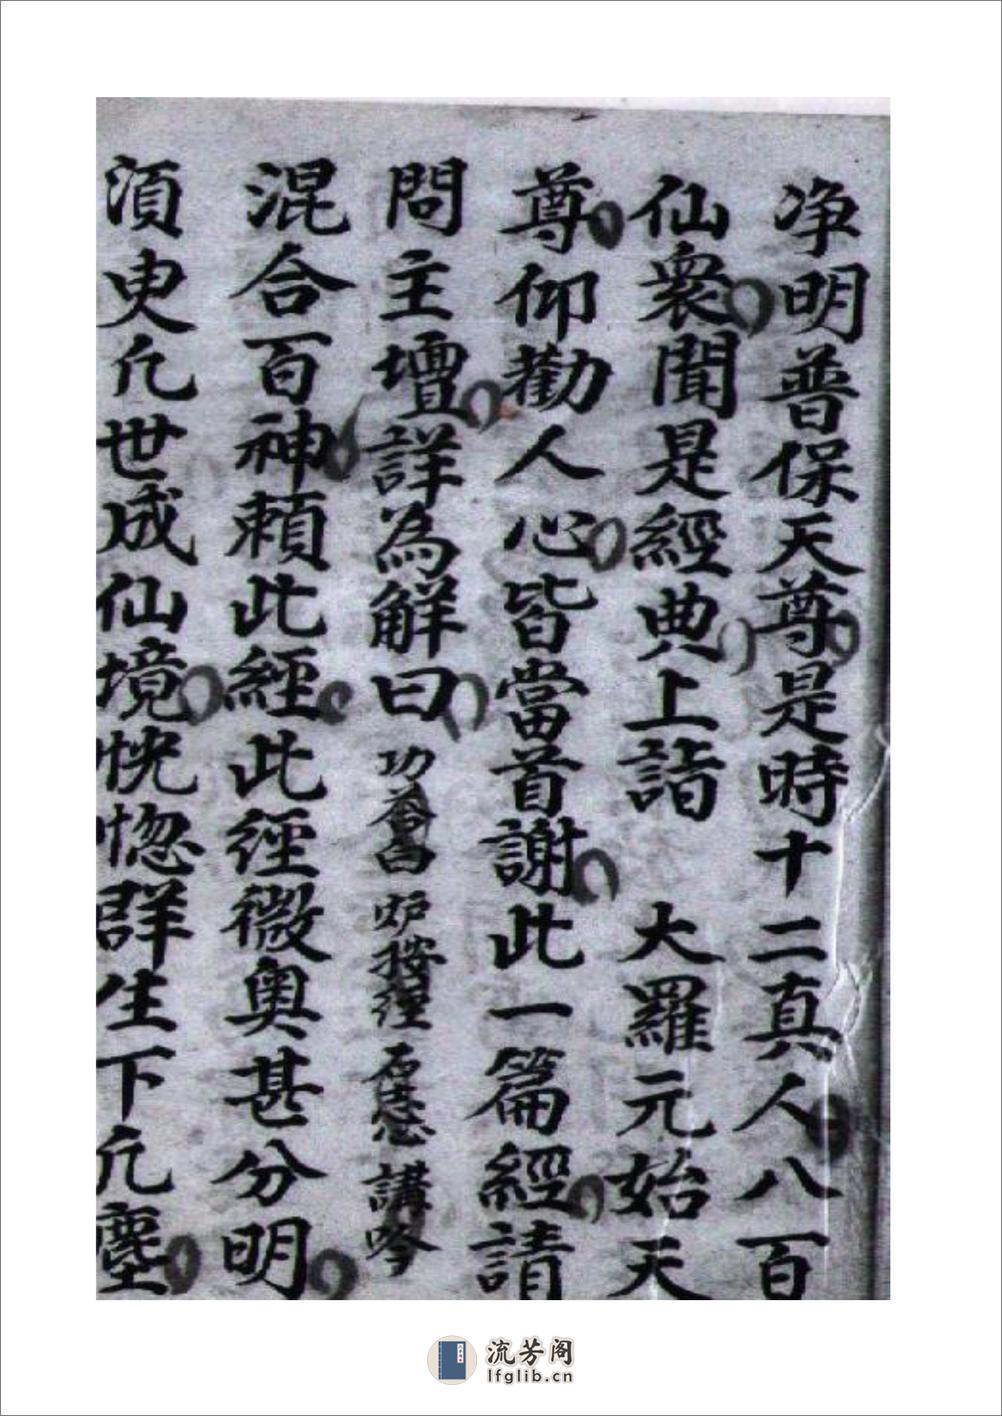 净明普保天尊是時十二真人八百
仙衆聞是經典上詣 大羅元始天
尊仰勸人心皆當首謝此一篇經請
問主壇詳為解曰 功答曰 炉按經 講吟
混合百神頼此經此經微奥甚分明
湏臾凢世成仙境恍惚群生下凢塵
流芳阁
lfglib.cn